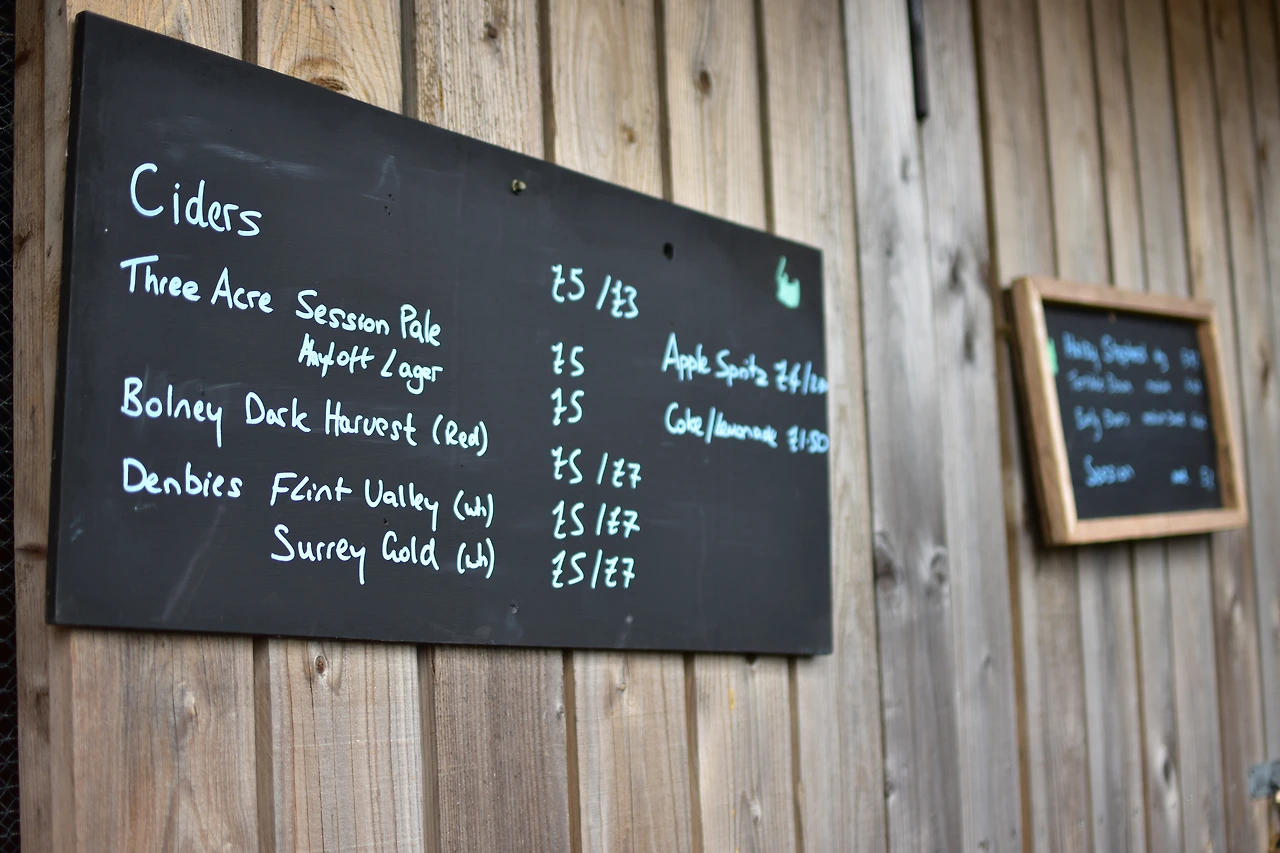 Ciders £5/£3
Three Acre Session Pale £5
Hayloft Lager £5
Bolney Dark Harvest (Red) £5/£7
Denbies Flint Valley (wh) £5/£7
Surrey Gold (wh) £5/£7
Apple Spritz £4/
Coke/lemonade £1.50
Session